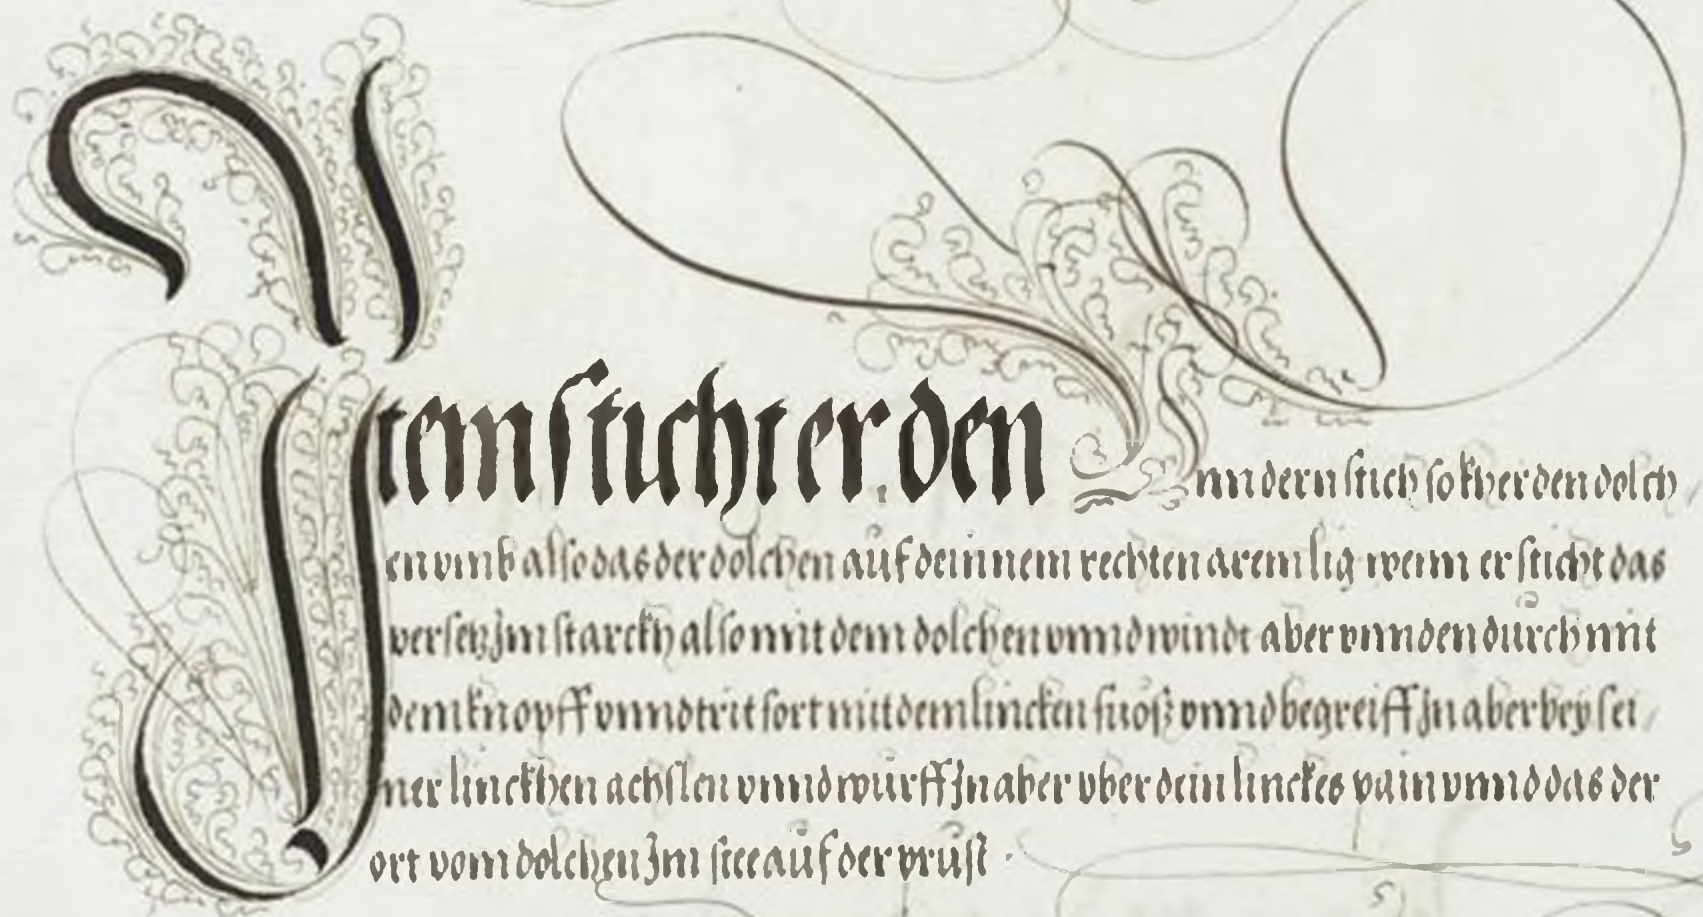 Item sticht er den Unndern stich so kher den dolch
en vmb also das der dolchen aůf deinnem rechten arem lig wenn er sticht das
versetz Jm starckh also mit dem dolchen vnnd windt aber vnnden důrch mit
dem knopff vnnd trit fort mit dem lincken fuoß vnnd begreiff Jn aber bey sei
ner linckhen achslen vnnd wůrff Jn aber vber dein linckes pain vnnd das der
ort vom dolchen Jm stee aůf der průst